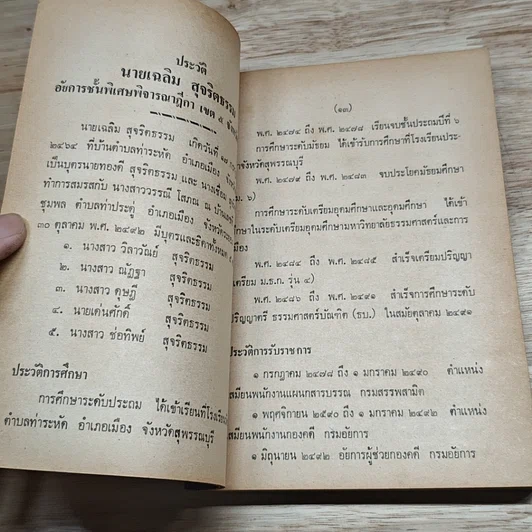 ประวัติ
นายเฉลิม สุจริตธรรม
อัยการชั้นพิเศษพิจารณาฎีกา เขต ๕
นายเฉลิม สุจริตธรรม เกิดวันที่
๒๔๖๔ ที่บ้านตำบลท่าระหัด อำเภอเมือง
เป็นบุตรนายทองดี สุจริตธรรม และ นางเชื่อม
ทำการสมรสกับ นางสาววรรณี โสภณ ณ บ้านเลขที่
ชุมพล ตำบลท่าประตู่ อำเภอเมือง จังหวัด
๓๐ ตุลาคม พ.ศ. ๒๔๙๒ มีบุตรและธิดาทั้งหมด
๑. นางสาว วิลาวัณย์ สุจริตธรรม
๒. นางสาว ณัฏฐา สุจริตธรรม
๓. นางสาว ดุษฎี สุจริตธรรม
๔. นายเด่นศักดิ์ สุจริตธรรม
๕. นางสาว ช่อทิพย์ สุจริตธรรม
ประวัติการศึกษา
การศึกษาระดับประถม ได้เข้าเรียนที่โรงเรียน
ตำบลท่าระหัด อำเภอเมือง จังหวัดสุพรรณบุรี
(๑๓)
พ.ศ. ๒๔๗๔ ถึง พ.ศ. ๒๔๗๘ เรียนจบชั้นประถมปีที่ ๖
การศึกษาระดับมัธยม ได้เข้ารับการศึกษาที่โรงเรียนประ-
จำจังหวัดสุพรรณบุรี
พ.ศ. ๒๔๗๙ ถึง พ.ศ. ๒๔๘๓ จบประโยคมัธยมศึกษา
ม. ๖)
การศึกษาระดับเตรียมอุดมศึกษาและอุดมศึกษา ได้เข้า
ศึกษาในระดับเตรียมอุดมศึกษามหาวิทยาลัยธรรมศาสตร์และการ
เมือง
พ.ศ. ๒๔๘๔ ถึง พ.ศ. ๒๔๘๕ สำเร็จเตรียมปริญญา
เตรียม ม.ธ.ก. รุ่น ๔)
พ.ศ. ๒๔๘๖ ถึง พ.ศ. ๒๔๙๑ สำเร็จการศึกษาระดับ
ปริญญาตรี ธรรมศาสตร์บัณฑิต (ธบ.) ในสมัยตุลาคม ๒๔๙๑
ประวัติการรับราชการ
๑ กรกฎาคม ๒๔๗๘ ถึง ๑ มกราคม ๒๔๙๐ ตำแหน่ง
เสมียนพนักงานแผนกสารบรรณ กรมสรรพสามิต
๑ พฤศจิกายน ๒๕๙๐ ถึง ๑ มกราคม ๒๔๙๒ ตำแหน่ง
เสมียนพนักงานกองคดี กรมอัยการ
๑ มิถุนายน ๒๔๙๒ อัยการผู้ช่วยกองคดี กรมอัยการ